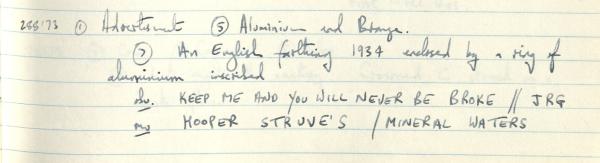 288'73 ① Advertisement ⑤ Aluminium and Bronze.
⑦ An English farthing 1934 enclosed by a ring of
aluminium inscribed
obv. KEEP ME AND YOU WILL NEVER BE BROKE // JRG
rev HOOPER STRUVE'S / MINERAL WATERS